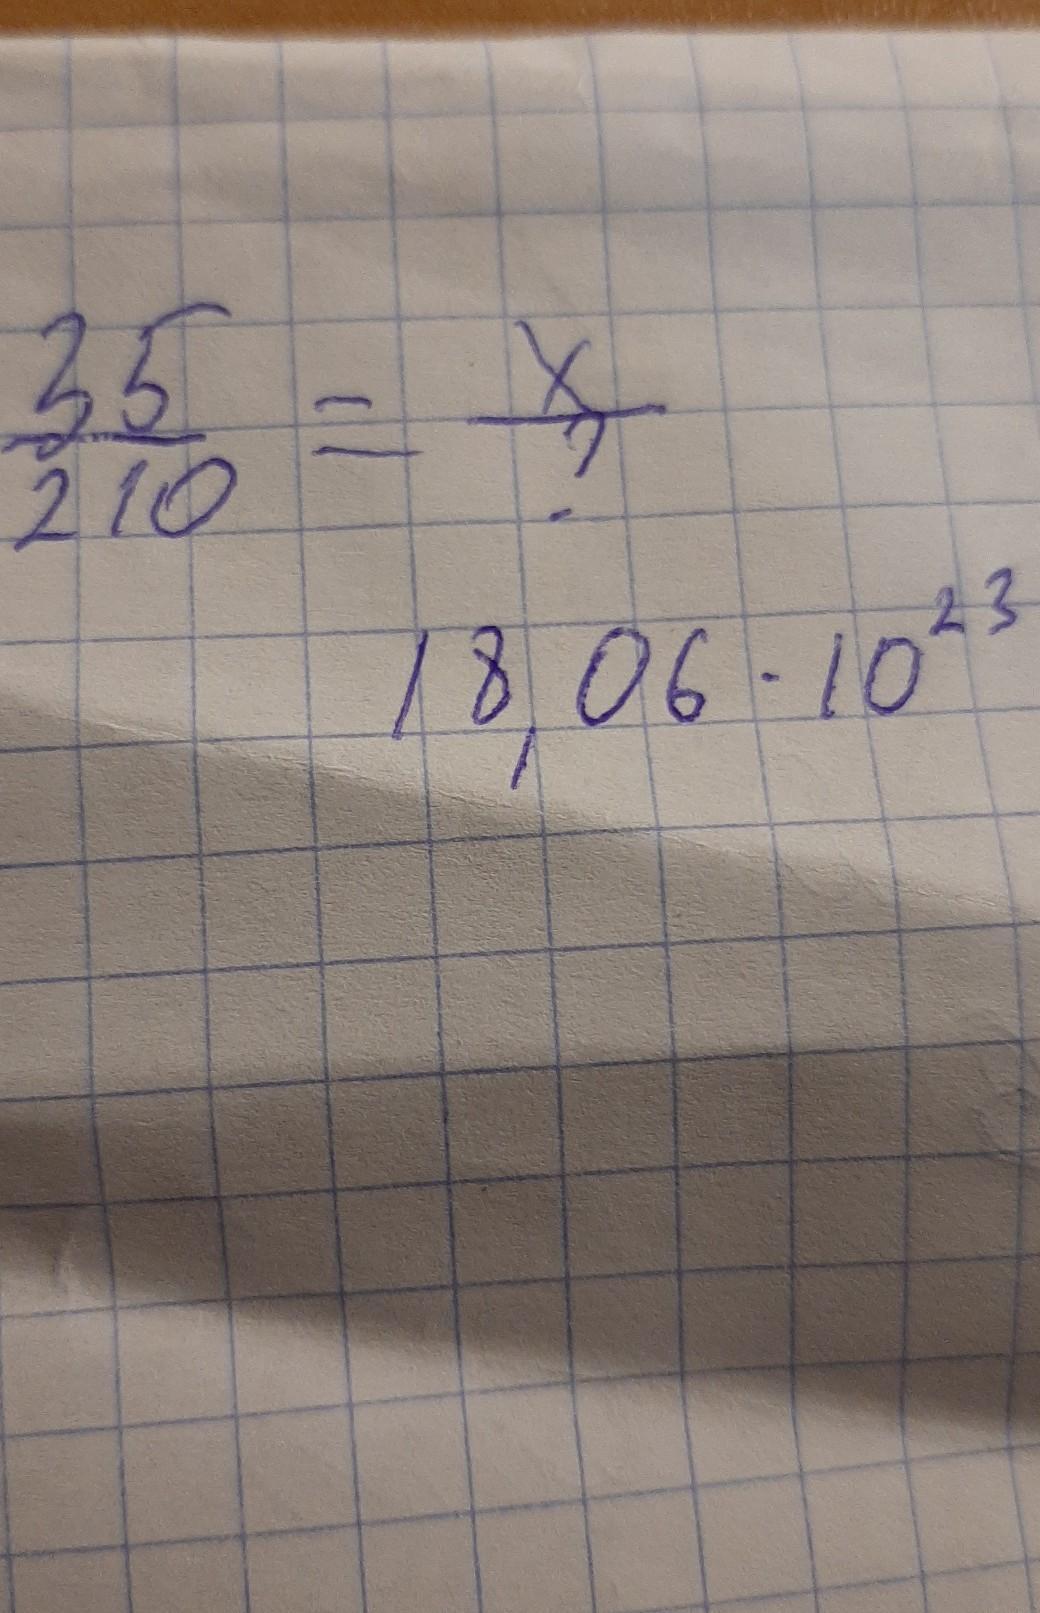 35/210 = x/?
18,06 · 10²³